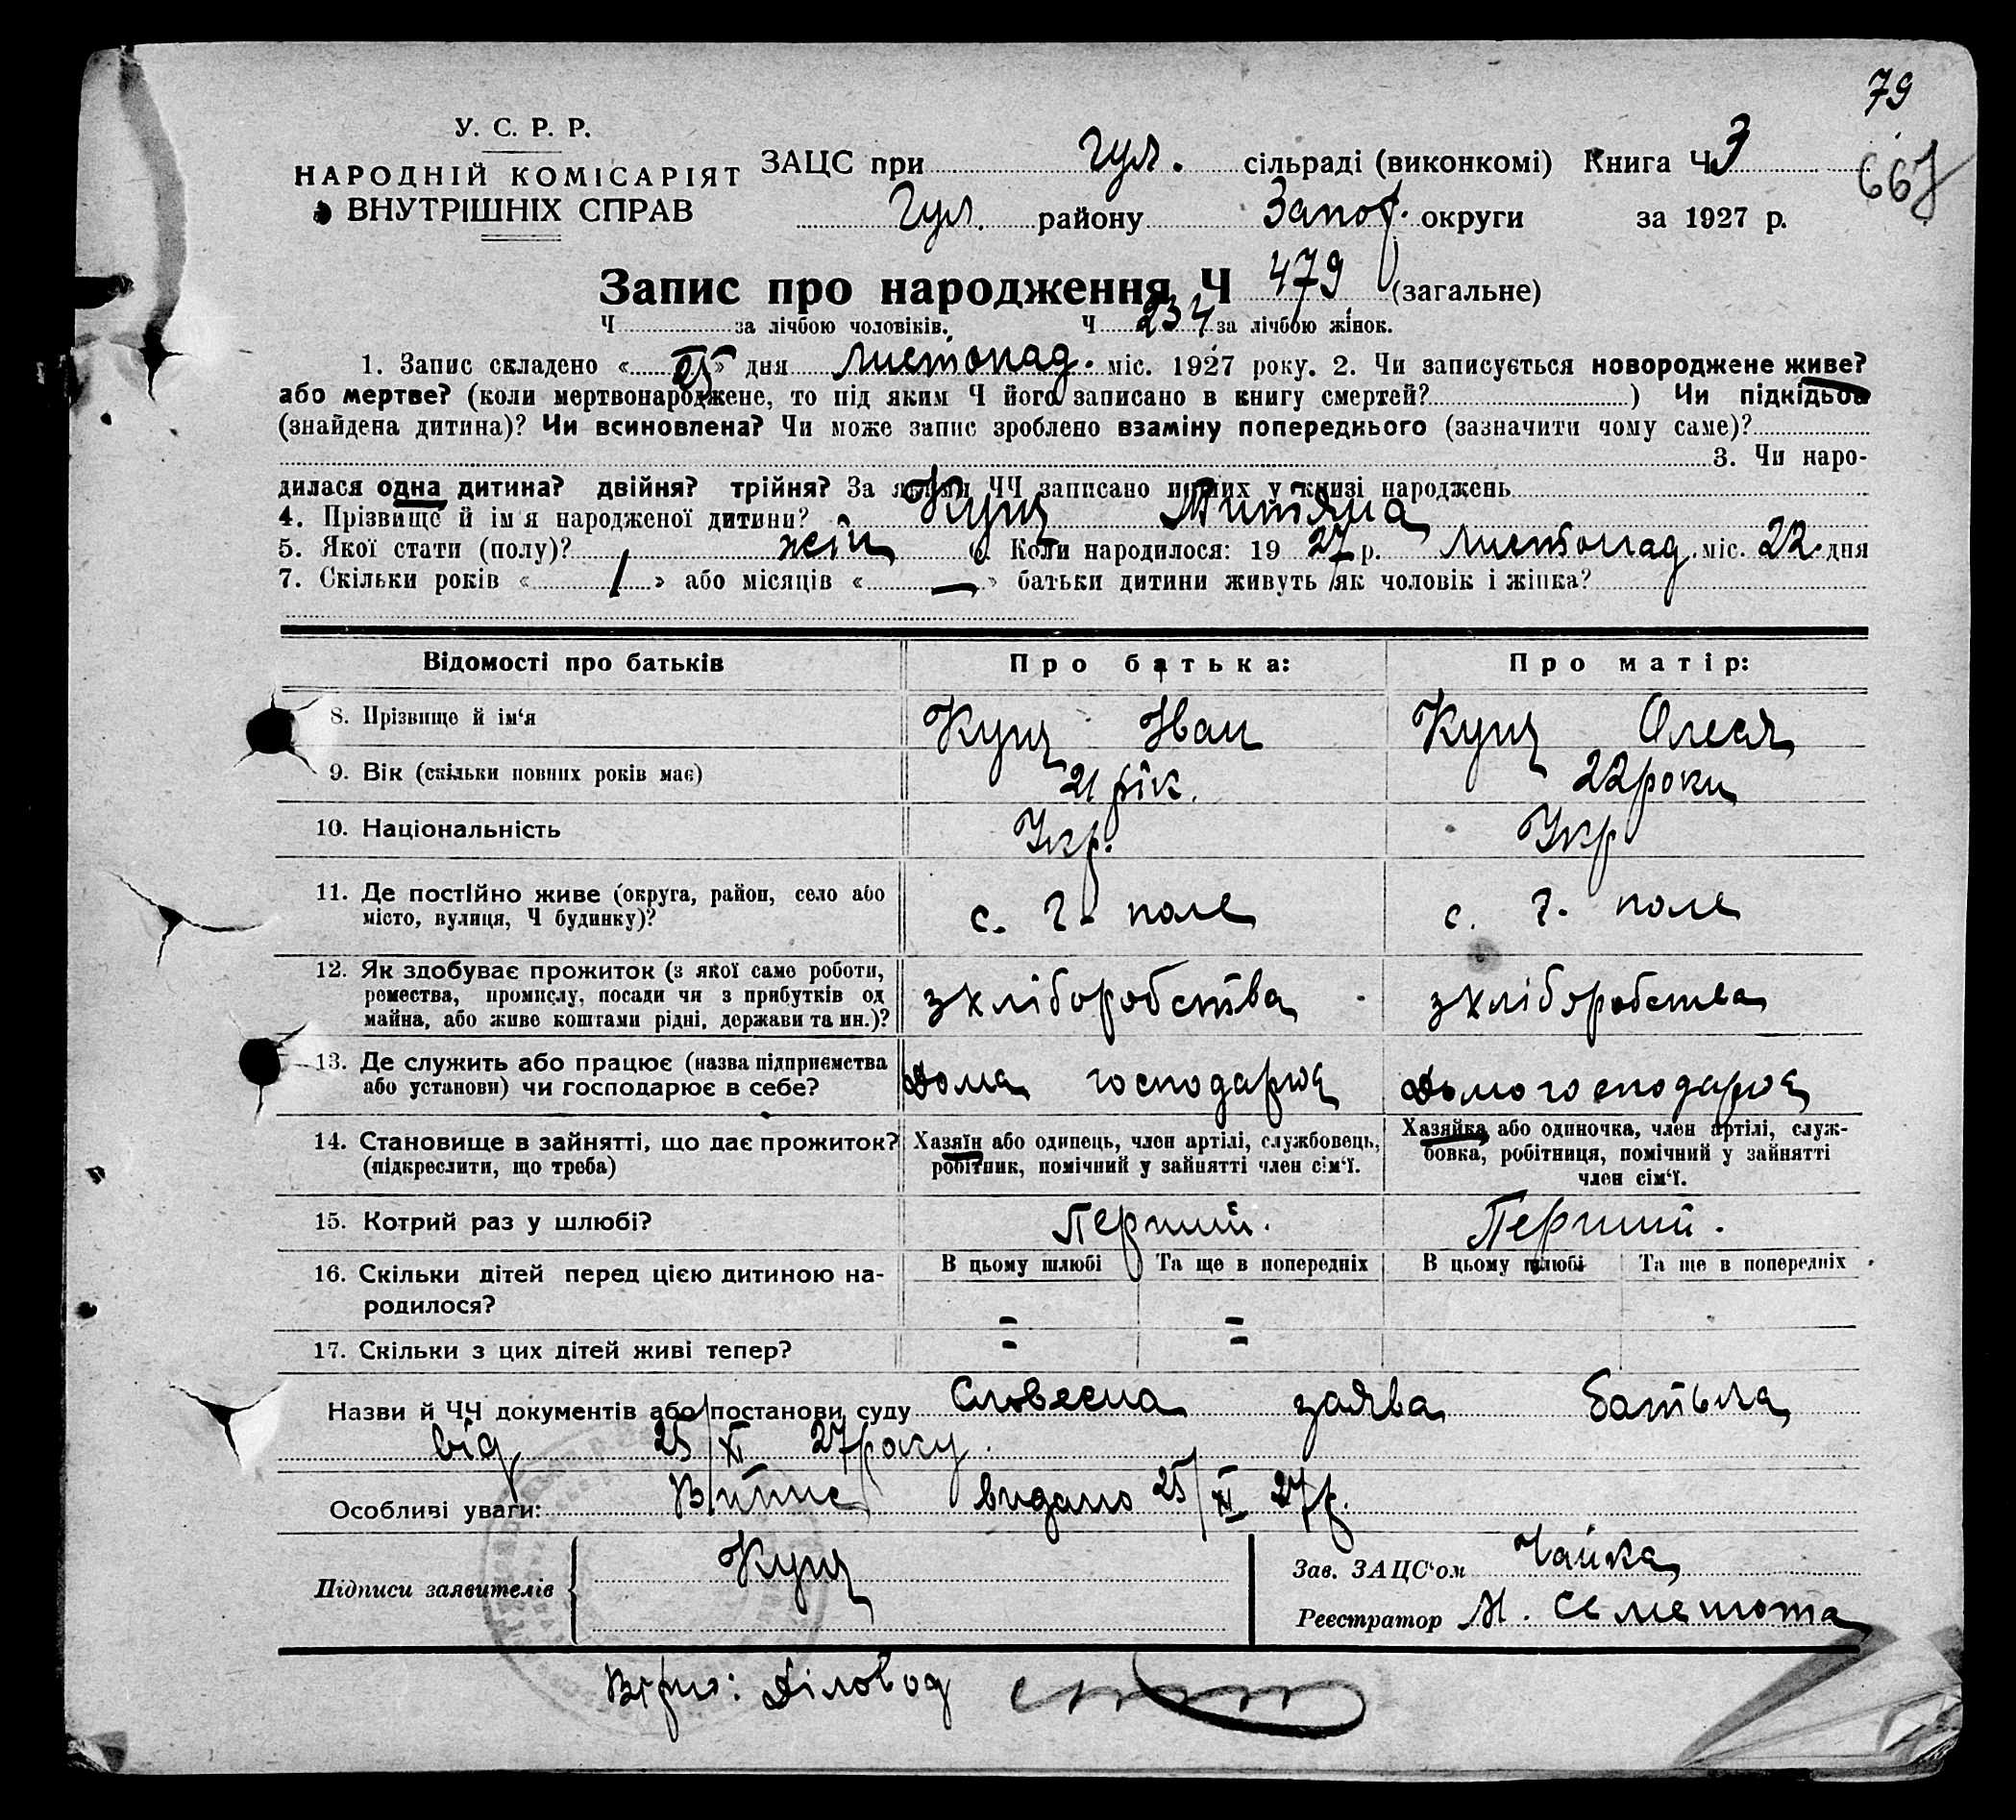 79
667
У. С. Р. Р.
НАРОДНІЙ КОМІСАРІЯТ
ВНУТРІШНІХ СПРАВ
ЗАЦС при Гул. сільраді (виконкомі) Книга Ч 3
Гул. району Запор. округи за 1927 р.
Запис про народження Ч 479 (загальне)
Ч за лічбою чоловіків. Ч 234 за лічбою жінок.
1. Запис складено « 25 » дня Листопад. міс. 1927 року. 2. Чи записується новороджене живе?
або мертве? (коли мертвонароджене, то під яким Ч його записано в книгу смертей? ) Чи підкідьок
(знайдена дитина)? Чи всиновлена? Чи може запис зроблено взаміну попереднього (зазначити чому саме)?
3. Чи наро-
дилася одна дитина? двійня? трійня? За якими ЧЧ записано инших у книзі народжень
4. Прізвище й ім'я народженої дитини? Куця
5. Якої стати (полу)? жін 6. Коли народилося: 19 27 р. Листопад. міс. 22. дня
7. Скільки років « 1 » або місяців « — » батьки дитини живуть як чоловік і жінка?
Відомості про батьків Про батька: Про матір:
8. Прізвище й ім'я Куця Іван Куця Олеся
9. Вік (скільки повних років має) 21 рік. 22 роки
10. Національність Укр. Укр
11. Де постійно живе (округа, район, село або
місто, вулиця, Ч будинку)? с. Г. поле с. Г. поле
12. Як здобуває прожиток (з якої само роботи,
ремества, промислу, посади чи з прибутків од
майна, або живе коштами рідні, держави та ин.)? з хліборобства з хліборобства
13. Де служить або працює (назва підприємства
або установи) чи господарює в себе? Дома господарює Дома господарює
14. Становище в зайнятті, що дає прожиток?
(підкреслити, що треба)
Хазяїн або одинець, член артілі, службовець,
робітник, помічний у зайнятті член сім'ї.
Хазяйка або одиночка, член артілі, служ-
бовка, робітниця, помічний у зайнятті
член сім'ї.
15. Котрий раз у шлюбі? Перший. Перший.
16. Скільки дітей перед цією дитиною на-
родилося?
В цьому шлюбі Та ще в попередніх В цьому шлюбі Та ще в попередніх
17. Скільки з цих дітей живі тепер?
Назви й ЧЧ документів або постанови суду Словесна заява батька
від 25/XI 27 року.
Особливі уваги: Витис видано 25/XI 27 р.
Підписи заявителів Куця
Зав. ЗАЦС'ом Чайка
Реєстратор
Вірно: Діловод